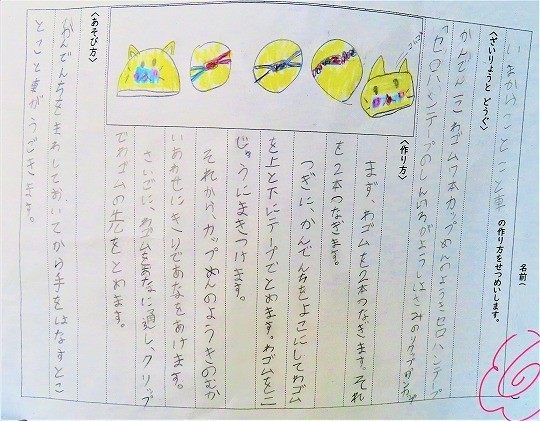 名前(
いまかけとことこ車の作り方をせつめいします。
〈ざいりょうと どうぐ〉
かんでん一こ わゴム7本カップめんのようきセロハンテープ
「セロハンテープのしん
がようしはさみ
〈作り方〉
まず、わゴムを2本つなぎます。それ
を2本つなぎます。
つぎに、かんでんちをよこにしてわゴム
を上と下にテープでとめます。わゴムを二
じゅうにまきつけます。
それから、カップめんのようきのむか
いあわせにきりであなをあけます。
さいごに、わゴムをあなに通し、クリップ
でわゴムの先をとめます。
〈あそび方〉
かんでんちをまわしておいてから手をはなすとこ
とこと車がうごきます。